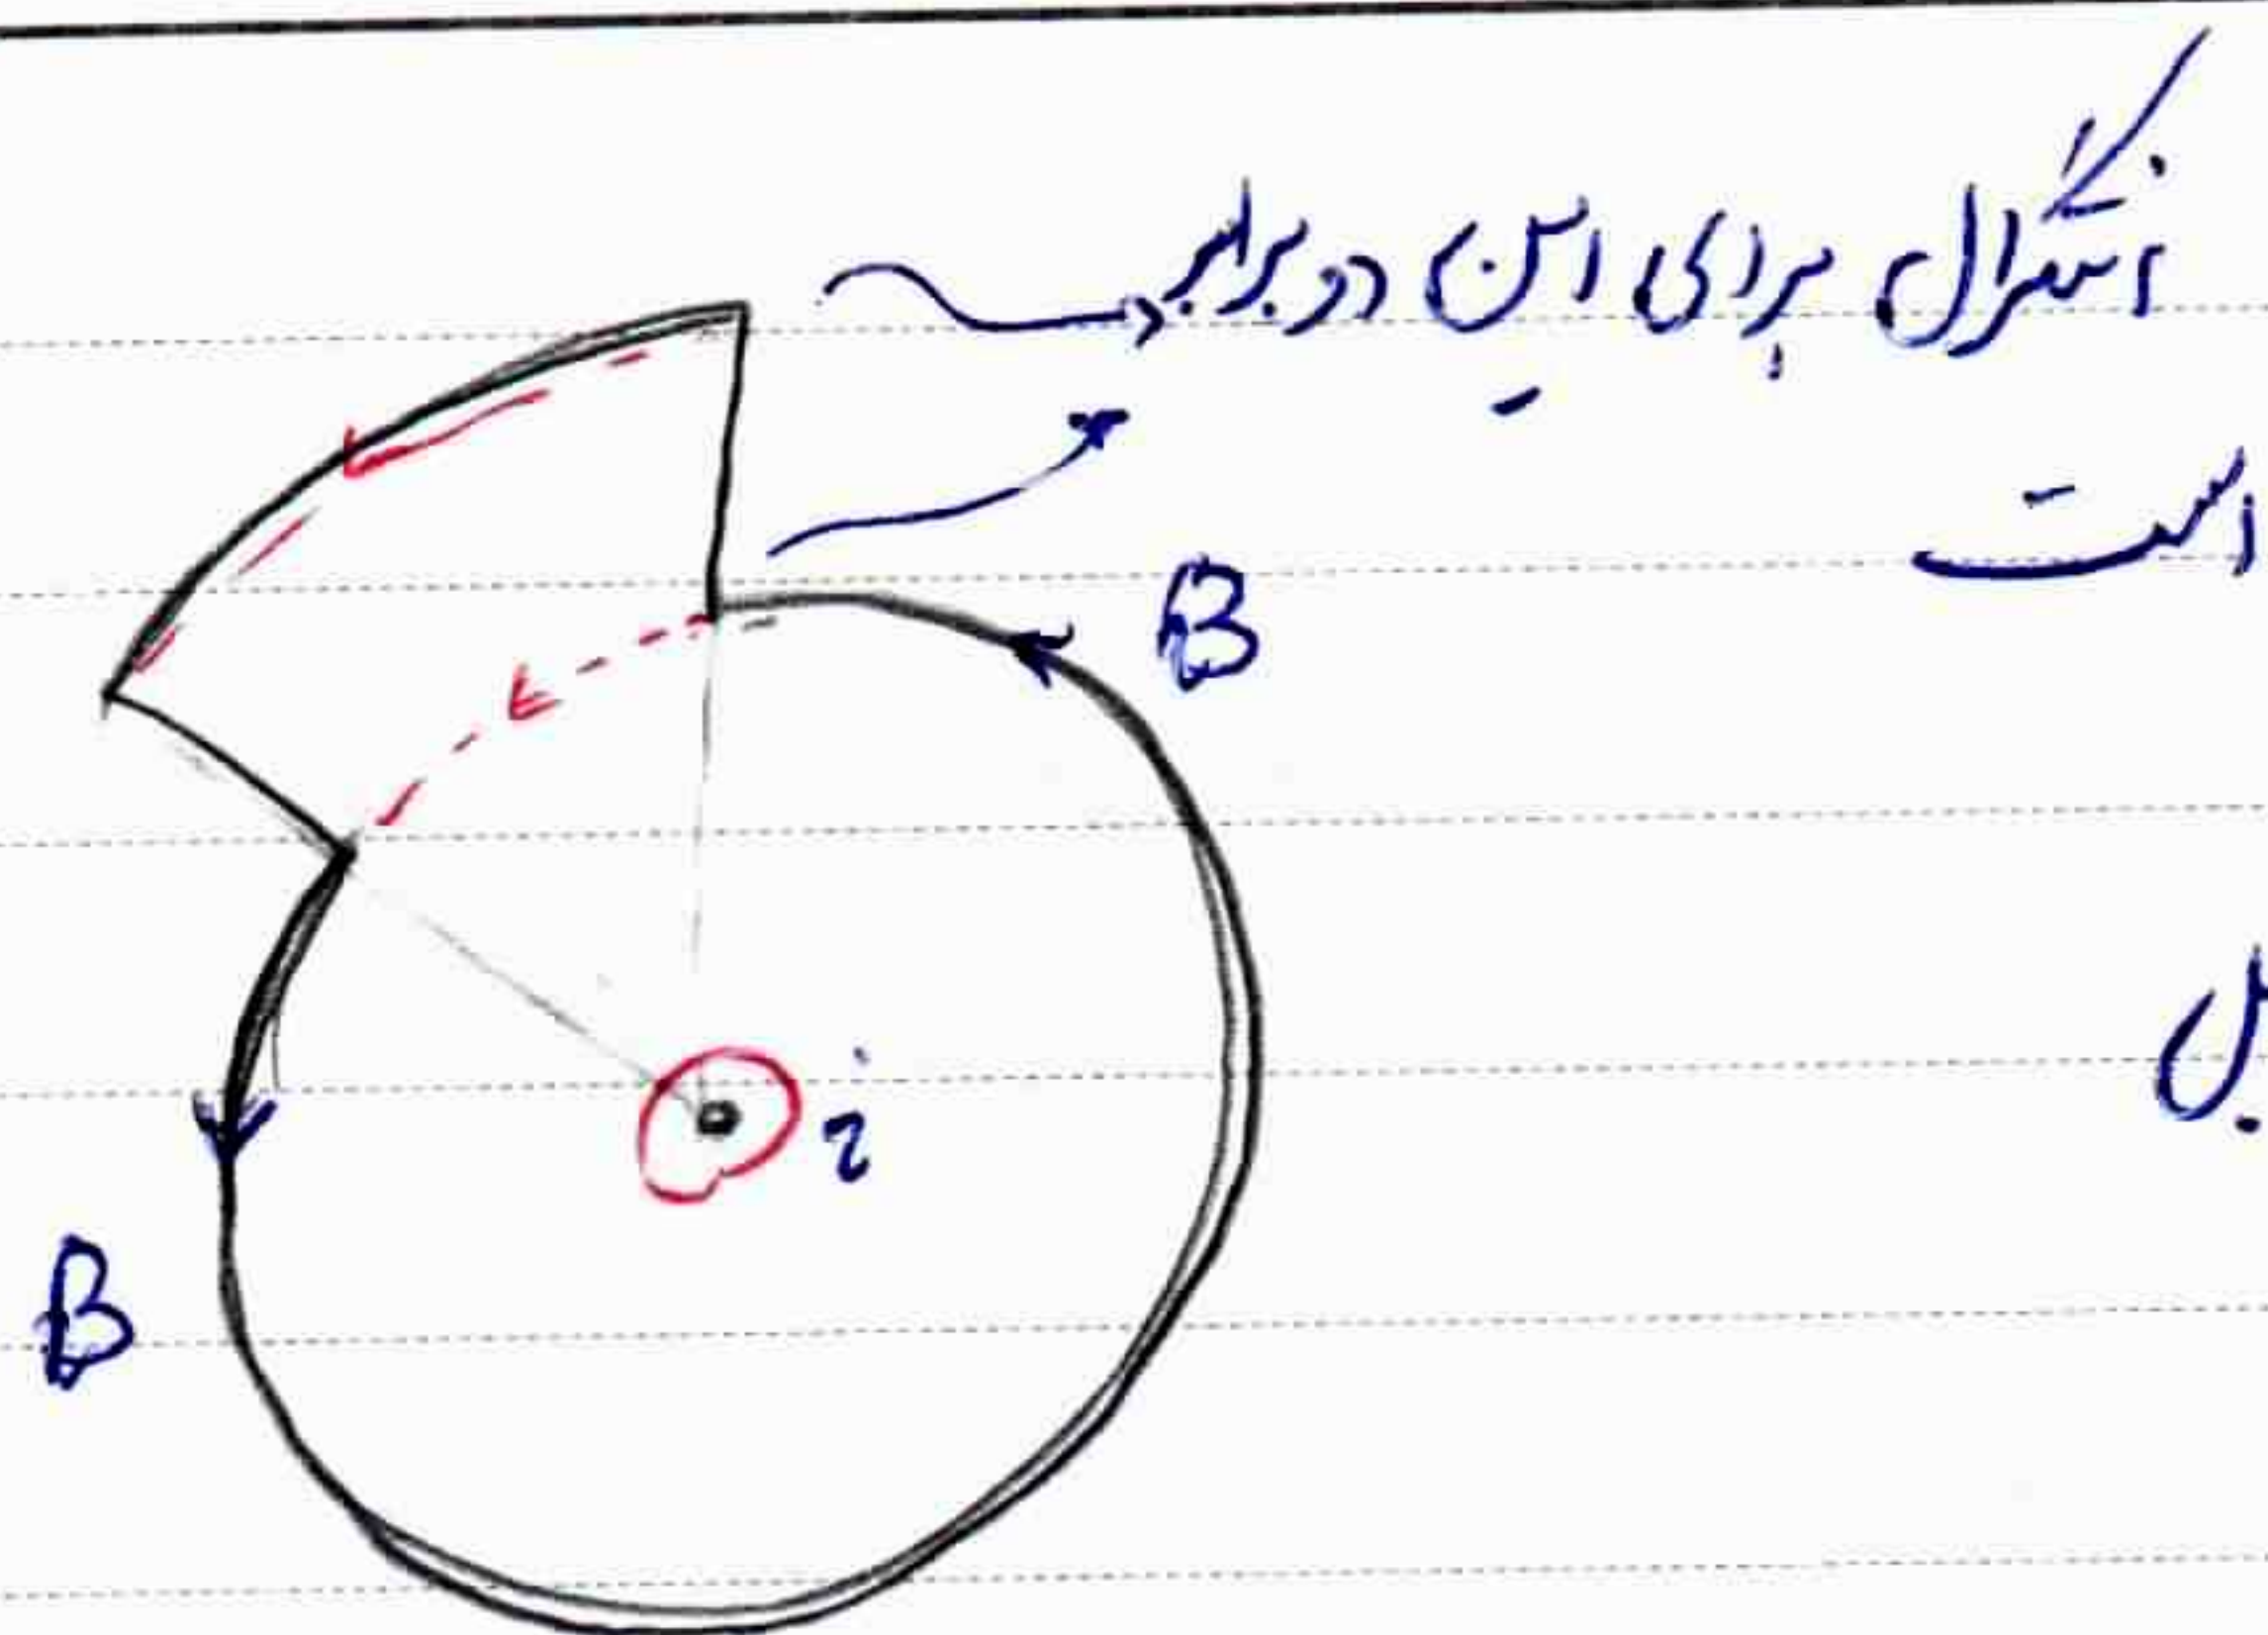 انتگرال برای این دو برابر
است
B
i
B